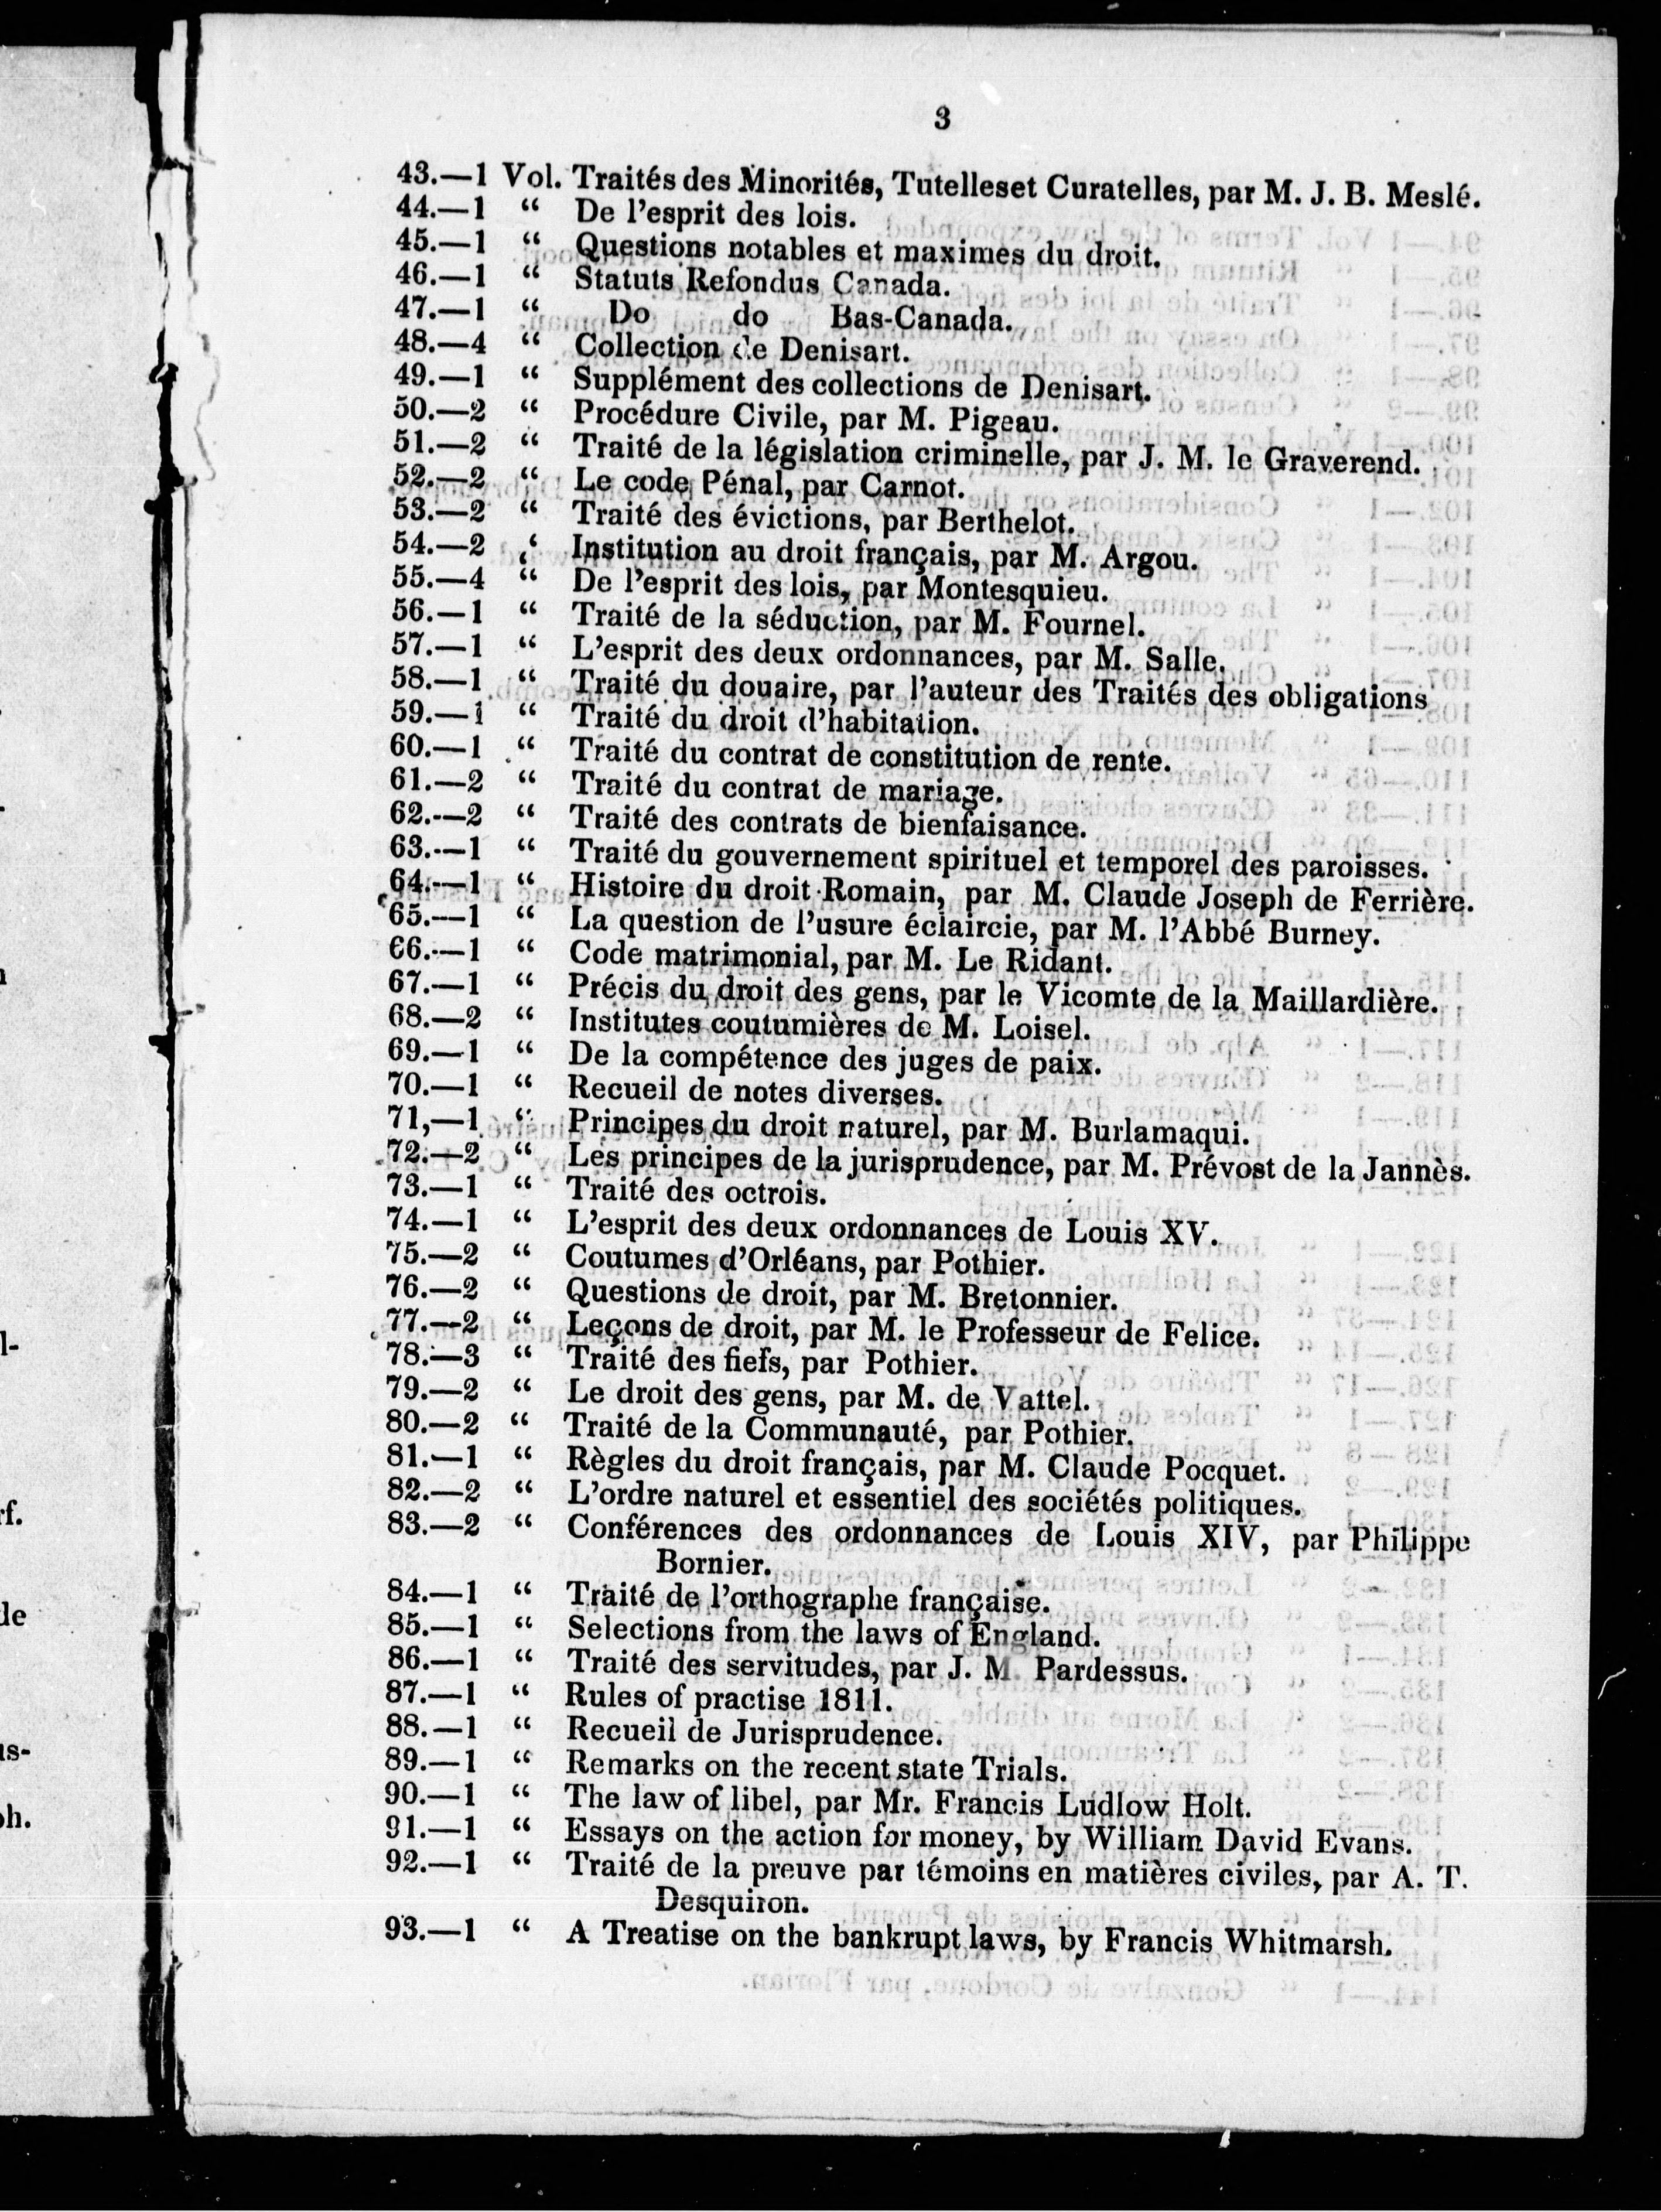 3
43.—1 Vol. Traités des Minorités, Tutelleset Curatelles, par M. J. B. Meslé.
44.—1 “ De l’esprit des lois.
45.—1 “ Questions notables et maximes du droit.
46.—1 “ Statuts Refondus Canada.
47.—1 “ Do do Bas-Canada.
48.—4 “ Collection de Denisart.
49.—1 “ Supplément des collections de Denisart.
50.—2 “ Procédure Civile, par M. Pigeau.
51.—2 “ Traité de la législation criminelle, par J. M. le Graverend.
52.—2 “ Le code Pénal, par Carnot.
53.—2 “ Traité des évictions, par Berthelot.
54.—2 “ Institution au droit français, par M. Argou.
55.—4 “ De l’esprit des lois, par Montesquieu.
56.—1 “ Traité de la séduction, par M. Fournel.
57.—1 “ L’esprit des deux ordonnances, par M. Salle.
58.—1 “ Traité du douaire, par l’auteur des Traités des obligations
59.—1 “ Traité du droit d’habitation.
60.—1 “ Traité du contrat de constitution de rente.
61.—2 “ Traité du contrat de mariage.
62.—2 “ Traité des contrats de bienfaisance.
63.—1 “ Traité du gouvernement spirituel et temporel des paroisses.
64.—1 “ Histoire du droit Romain, par M. Claude Joseph de Ferrière.
65.—1 “ La question de l’usure éclaircie, par M. l’Abbé Burney.
66.—1 “ Code matrimonial, par M. Le Ridant.
67.—1 “ Précis du droit des gens, par le Vicomte de la Maillardière.
68.—2 “ Institutes coutumières de M. Loisel.
69.—1 “ De la compétence des juges de paix.
70.—1 “ Recueil de notes diverses.
71,—1 “ Principes du droit naturel, par M. Burlamaqui.
72.—2 “ Les principes de la jurisprudence, par M. Prévost de la Jannès.
73.—1 “ Traité des octrois.
74.—1 “ L’esprit des deux ordonnances de Louis XV.
75.—2 “ Coutumes d’Orléans, par Pothier.
76.—2 “ Questions de droit, par M. Bretonnier.
77.—2 “ Leçons de droit, par M. le Professeur de Felice.
78.—3 “ Traité des fiefs, par Pothier.
79.—2 “ Le droit des gens, par M. de Vattel.
80.—2 “ Traité de la Communauté, par Pothier.
81.—1 “ Règles du droit français, par M. Claude Pocquet.
82.—2 “ L’ordre naturel et essentiel des sociétés politiques.
83.—2 “ Conférences des ordonnances de Louis XIV, par Philippe
Bornier.
84.—1 “ Traité de l’orthographe française.
85.—1 “ Selections from the laws of England.
86.—1 “ Traité des servitudes, par J. M. Pardessus.
87.—1 “ Rules of practise 1811.
88.—1 “ Recueil de Jurisprudence.
89.—1 “ Remarks on the recent state Trials.
90.—1 “ The law of libel, par Mr. Francis Ludlow Holt.
91.—1 “ Essays on the action for money, by William David Evans.
92.—1 “ Traité de la preuve par témoins en matières civiles, par A. T.
Desquiron.
93.—1 “ A Treatise on the bankrupt laws, by Francis Whitmarsh.